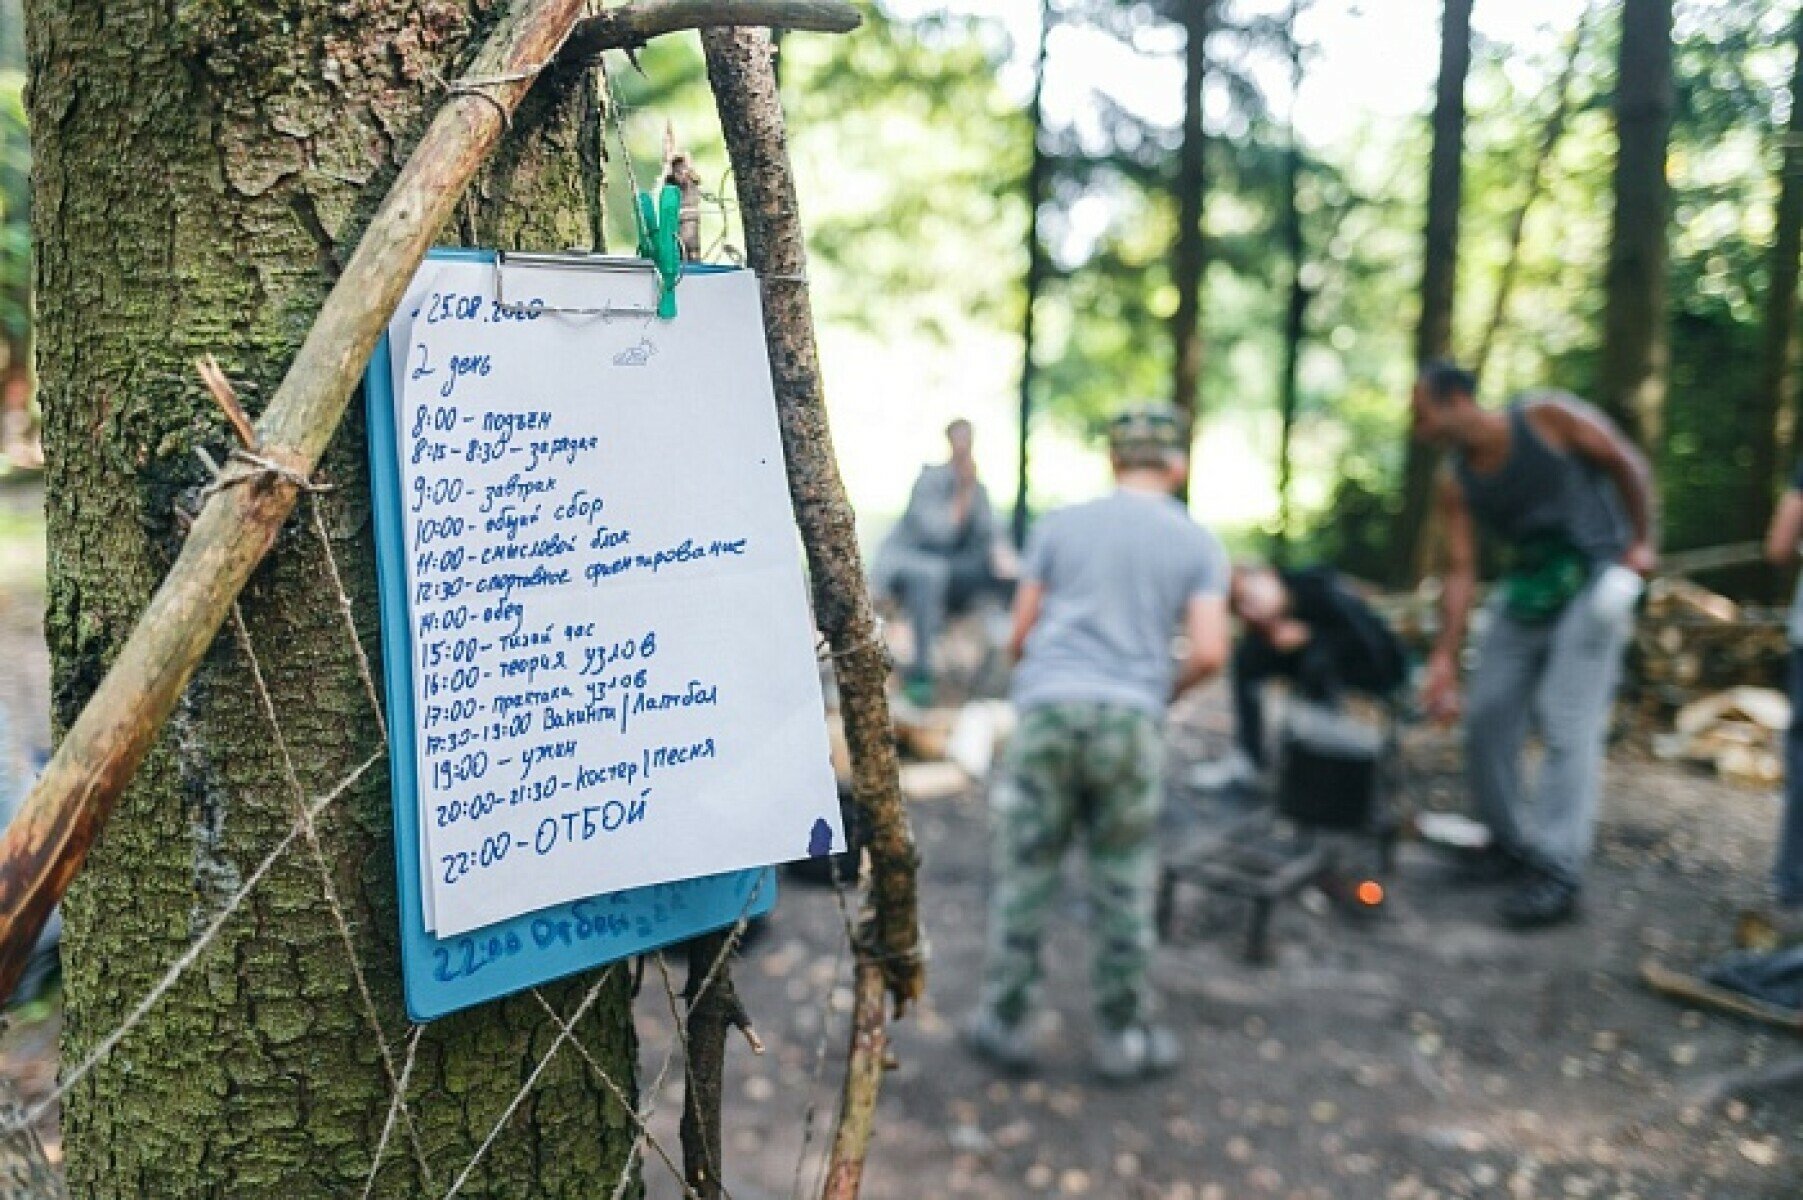 25.08.2020
2 день
8:00 - подъём
8:15 - 8:30 - зарядка
9:00 - завтрак
10:00 - общий сбор
11:00 - смысловой блок
12:30 - спортивное ориентирование
14:00 - обед
15:00 - тихий час
16:00 - теория узлов
17:00 - практика узлов
17:30-19:00 Викинги | Лаптбол
19:00 - ужин
20:00-21:30 - Костер | Песня
22:00 - ОТБОЙ
22:00 Отбой